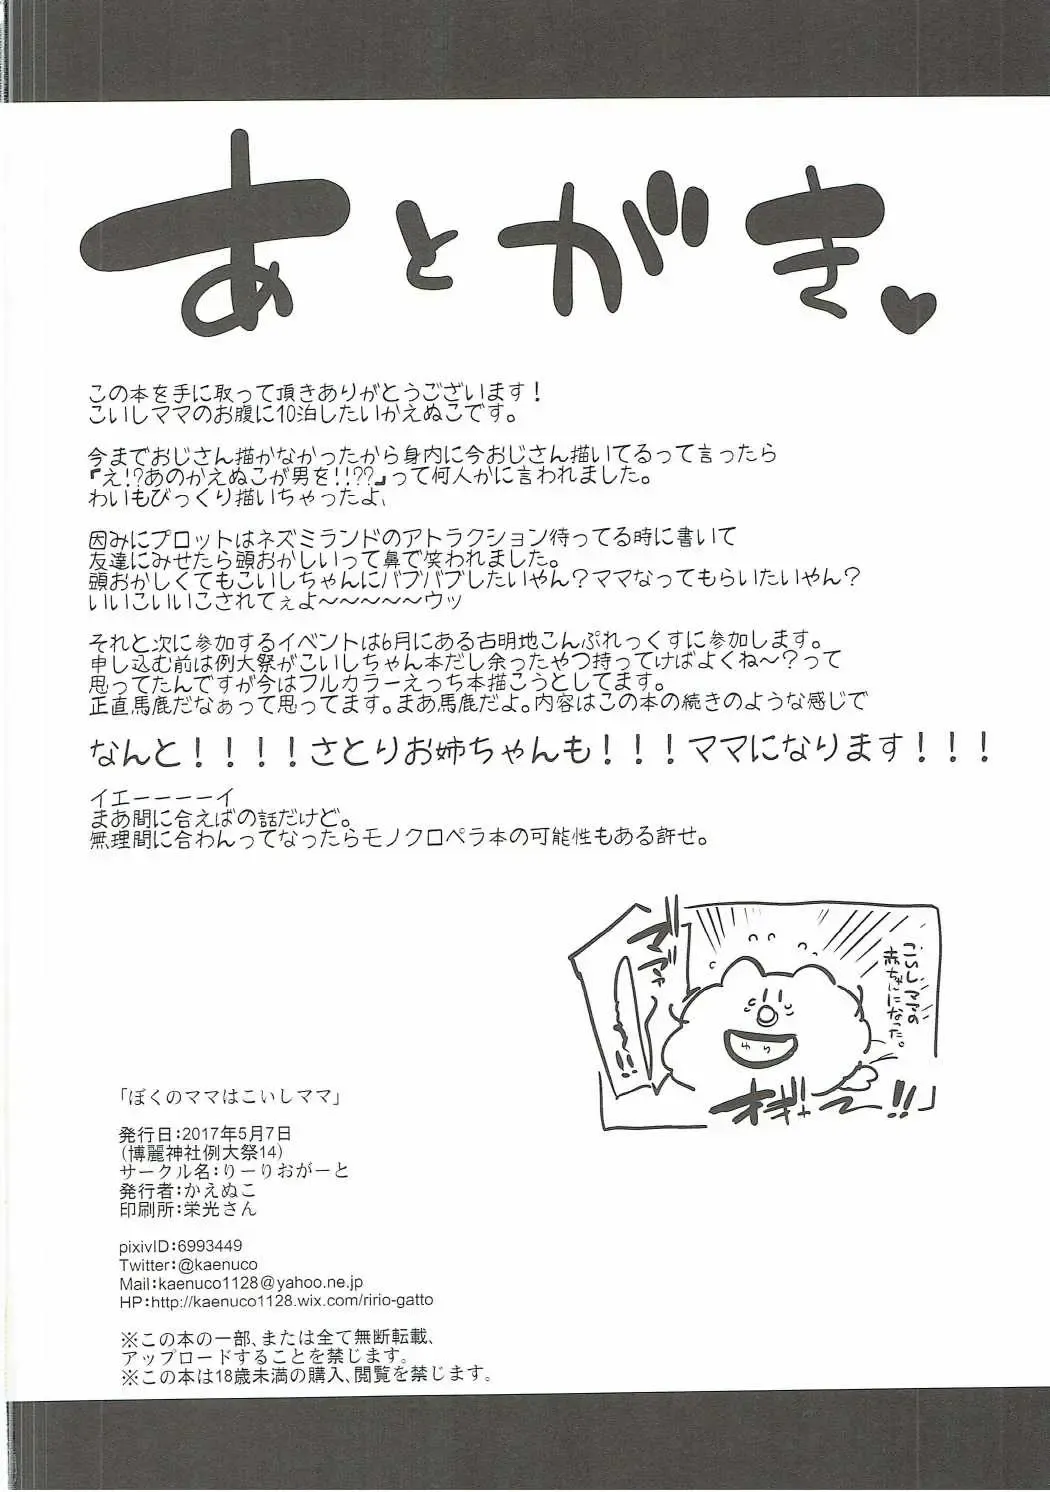 あとがき♥
この本を手に取って頂きありがとうございます！
こいしママのお腹に10泊したいかえぬこです。
今までおじさん描かなかったから身内に今おじさん描いてるって言ったら
『え!?あのかえぬこが男を!!??』って何人かに言われました。
わいもびっくり描いちゃったよ、
因みにプロットはネズミランドのアトラクション待ってる時に書いて
友達にみせたら頭おかしいって鼻で笑われました。
頭おかしくてもこいしちゃんにバブバブしたいやん？ママなってもらいたいやん？
いいこいいこされてぇよ～～～～～ウッ
それと次に参加するイベントは6月にある古明地こんぷれっくすに参加します。
申し込む前は例大祭がこいしちゃん本だし余ったやつ持ってけばよくね～？って
思ってたんですが今はフルカラーえっち本描こうとしてます。
正直馬鹿だなぁって思ってます。まあ馬鹿だよ。内容はこの本の続きのような感じで
なんと！！！！さとりお姉ちゃんも！！！ママになります！！！
イエーーーーイ
まあ間に合えばの話だけど。
無理間に合わんってなったらモノクロペラ本の可能性もある許せ。
こいしママの
赤ちゃんになった。
マ゙マ゙ァ
オギャー!!
「ぼくのママはこいしママ」
発行日：2017年5月7日
(博麗神社例大祭14)
サークル名：りーりおがーと
発行者：かえぬこ
印刷所：栄光さん
pixivID:6993449
Twitter:@kaenuco
Mail:kaenuco1128@yahoo.ne.jp
HP:http://kaenuco1128.wix.com/ririo-gatto
※この本の一部、または全て無断転載、
アップロードすることを禁じます。
※この本は18歳未満の購入、閲覧を禁じます。